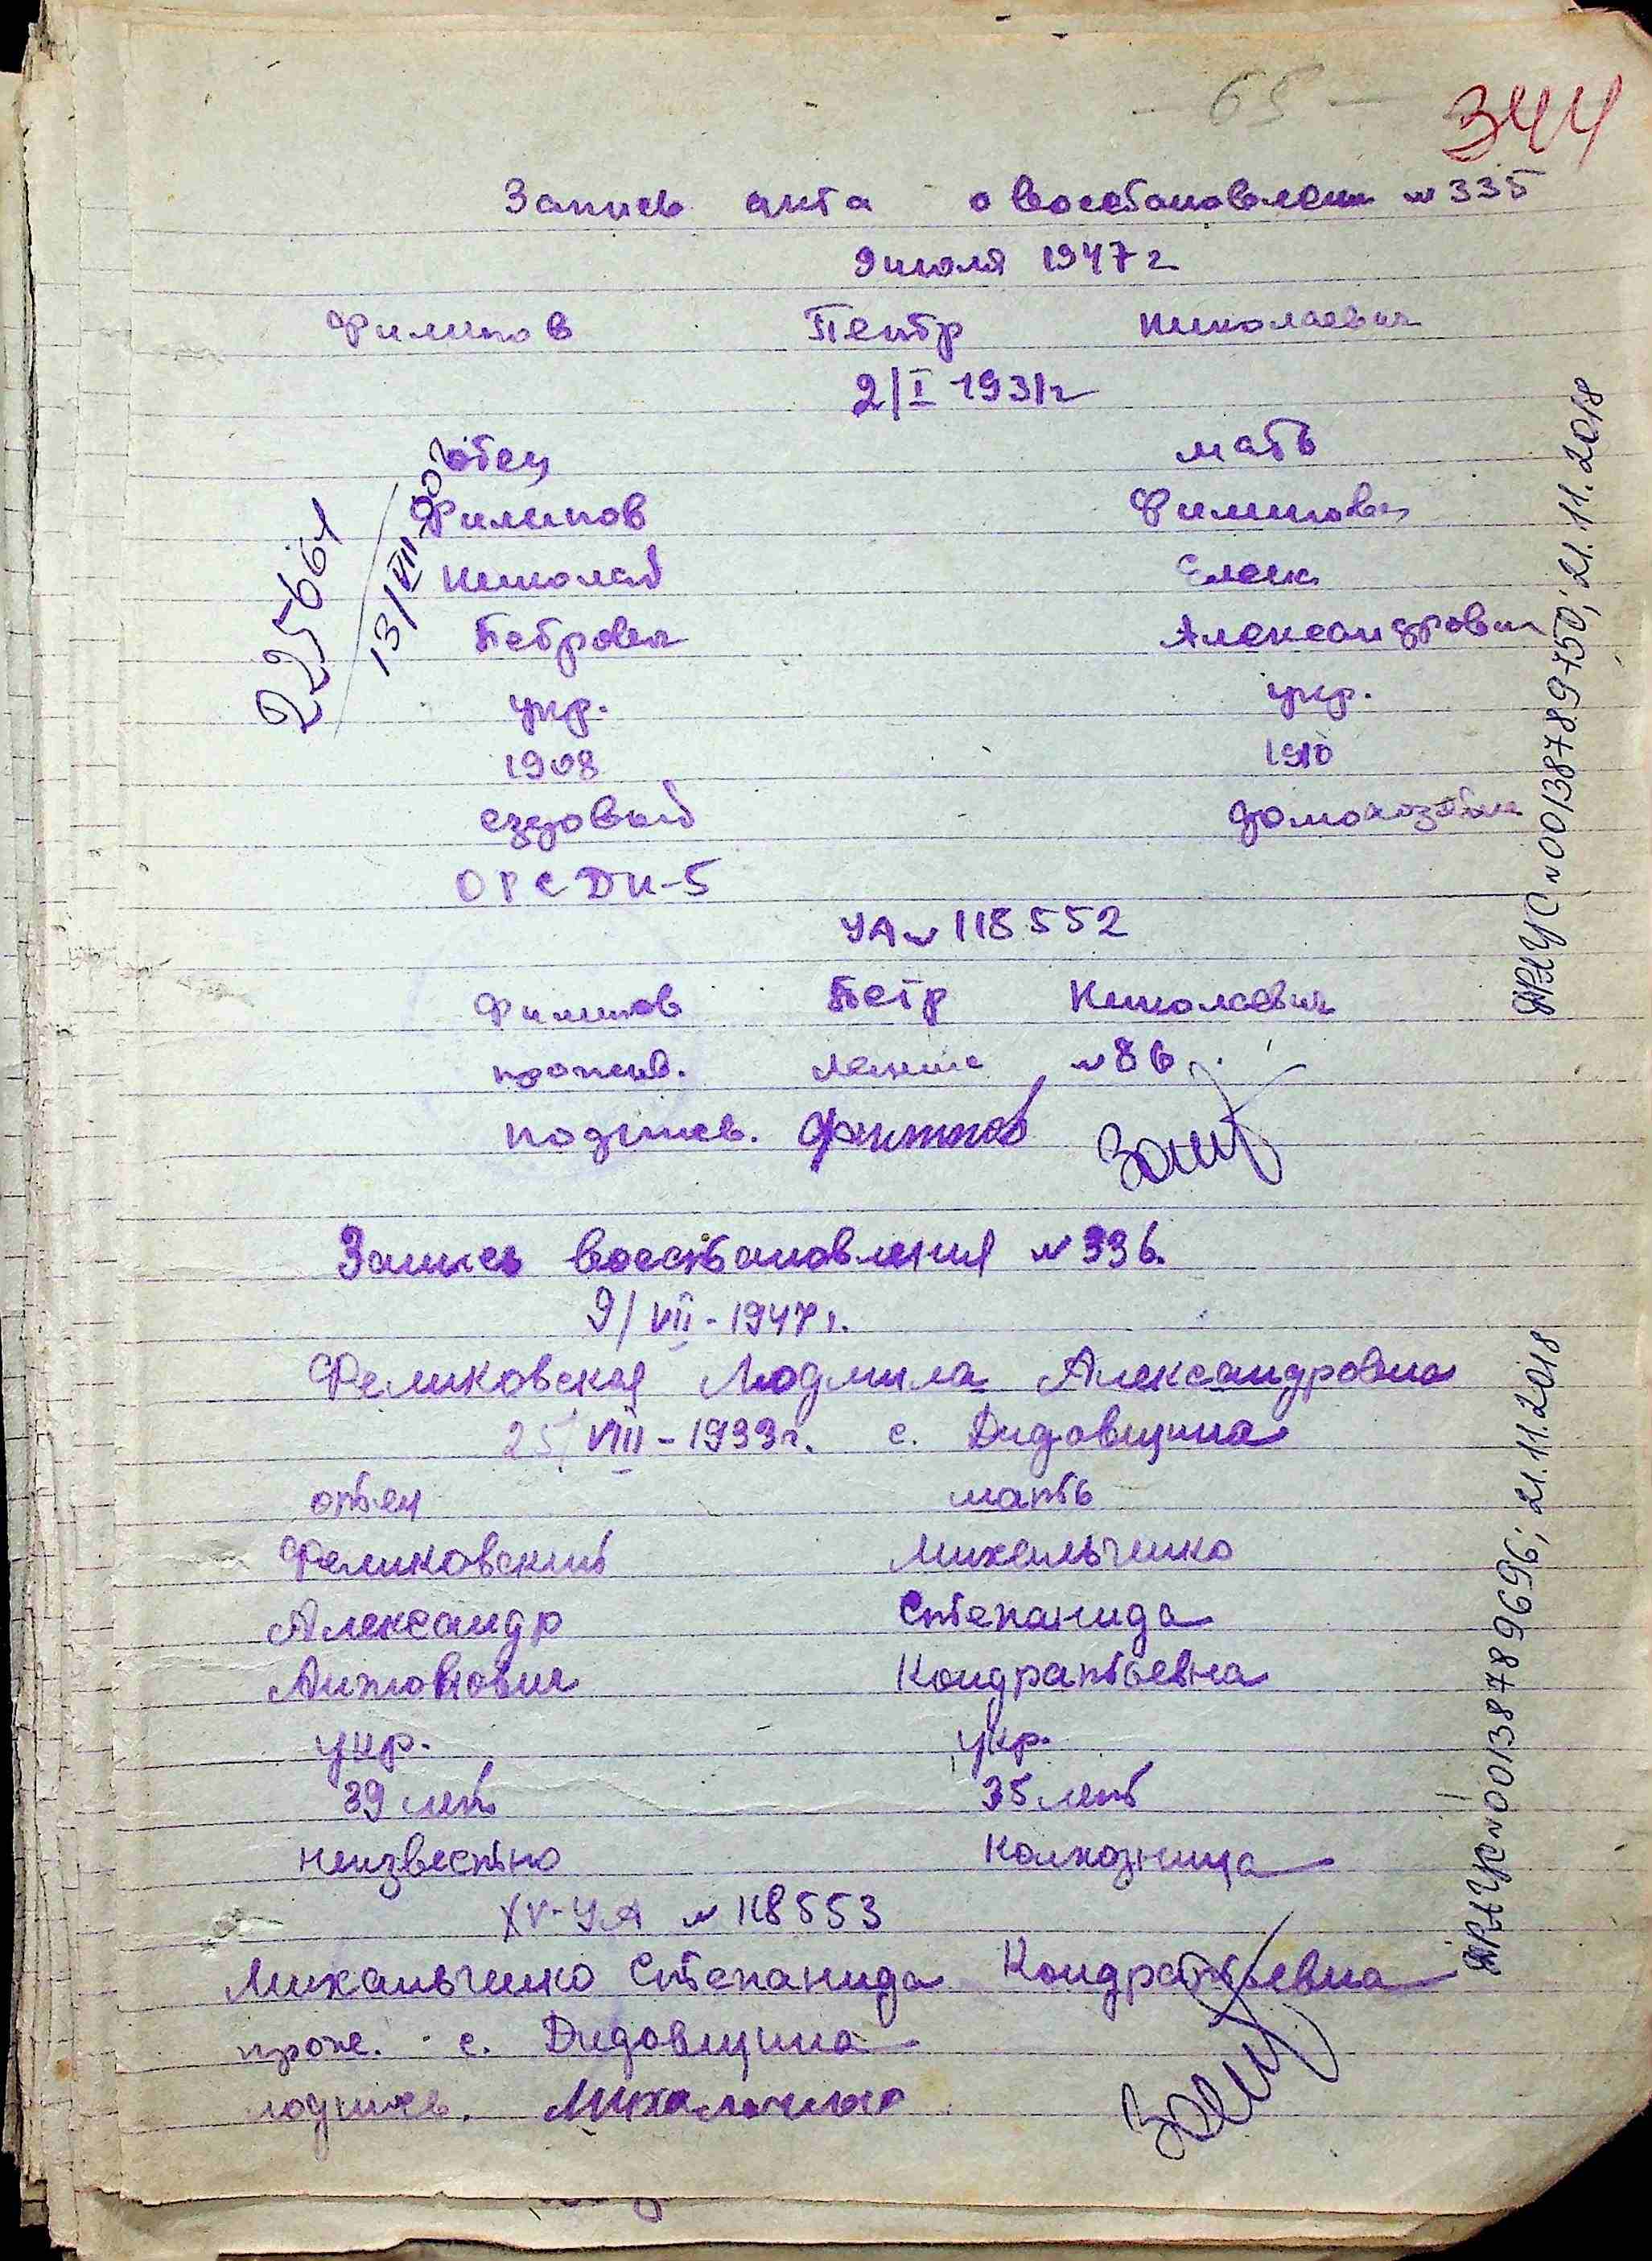 - 65 -
344
Запись акта о восстановлении № 335
9 июля 1947 г
Филипов Петр Николаевич
2/I 1931 г
отец мать
Филипов Филипова
Николай Елена
Петрович Александровн
укр. укр.
1908 1910
ездовый домохозяйка
ОРС ДК-5
УА № 118552
Филипов Петр Николаевич
прожив. Ленина № 86
подпись. Филипов
225661
13/VII
ДРАЦС № 00138789750; 21.11.2018
Запись восстановления № 336.
9/VII-1947 г.
Феликовская Людмила Александровна
25/VIII-1933 г. с. Дидовщина
отец мать
Феликовский Михальченко
Александр Степанида
Антонович Кондратьевна
укр. укр.
39 лет 35 лет
неизвестно Колхозница
XV-УА № 118553
Михальченко Степанида Кондратьевна
прож. с. Дидовщина
подпись. Михальченко
ДРАЦС № 00138789696; 21.11.2018